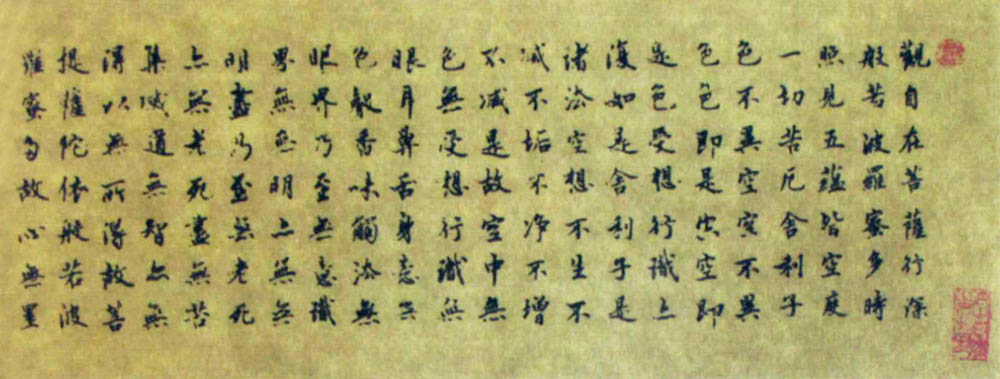 觀自在菩薩行深
般若波羅蜜多時
照見五蘊皆空度
一切苦厄舍利子
色不異空空不異
色色即是空空即
是色受想行識亦
復如是舍利子是
諸法空想不生不
滅不垢不淨不增
不減是故空中無
色無受想行識無
眼耳鼻舌身意無
色聲香味觸法無
眼界乃至無意識
界無無明亦無無
明盡乃至無老死
亦無老死盡無苦
集滅道無智亦無
得以無所得故菩
提薩陀依般若波
羅蜜多故心無罣